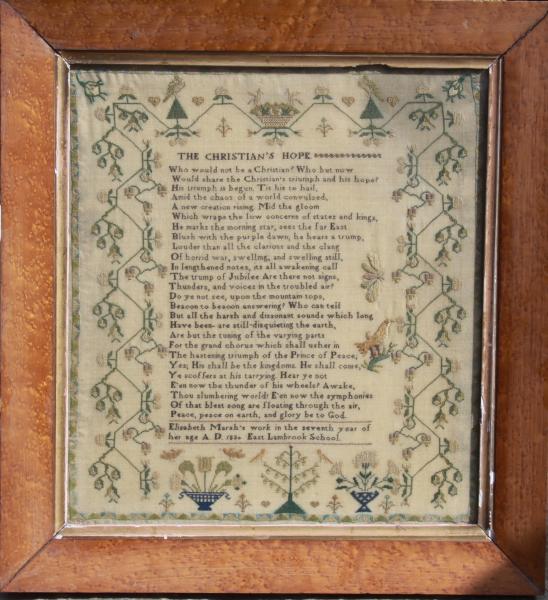 THE CHRISTIAN'S HOPE
Who would not be a Christian? Who but now
Would share the Christian's triumph and his hope?
His triumph is begun. Tis his to hail,
Amid the chaos of a world convulsed,
A new creation rising. Mid the gloom
Which wraps the low concerns of states and kings,
He marks the morning star, sees the far East
Blush with the purple dawn; he hears a trump,
Louder than all the clarions and the clang
Of horrid war, swelling, and swelling still,
In lengthened notes, its all awakening call
The trump of Jubilee Are there not signs,
Thunders, and voices in the troubled air?
Do ye not see, upon the mountain tops,
Beacon to beacon answering? Who can tell
But all the harsh and dissonant sounds which long
Have been- are still-disquieting the earth,
Are but the tuning of the varying parts
For the grand chorus which shall usher in
The hastening triumph of the Prince of Peace,
Yes; His shall be the kingdoms. He shall come,
Ye scoffers at his tarrying. Hear ye not
E'en now the thunder of his wheels? Awake,
Thou slumbering world! E'en now the symphonies
Of that blest song are floating through the air,
Peace, peace on earth, and glory be to God.
Elisabeth Marsh's work in the seventh year of
her age A. D. East Lambrook School.